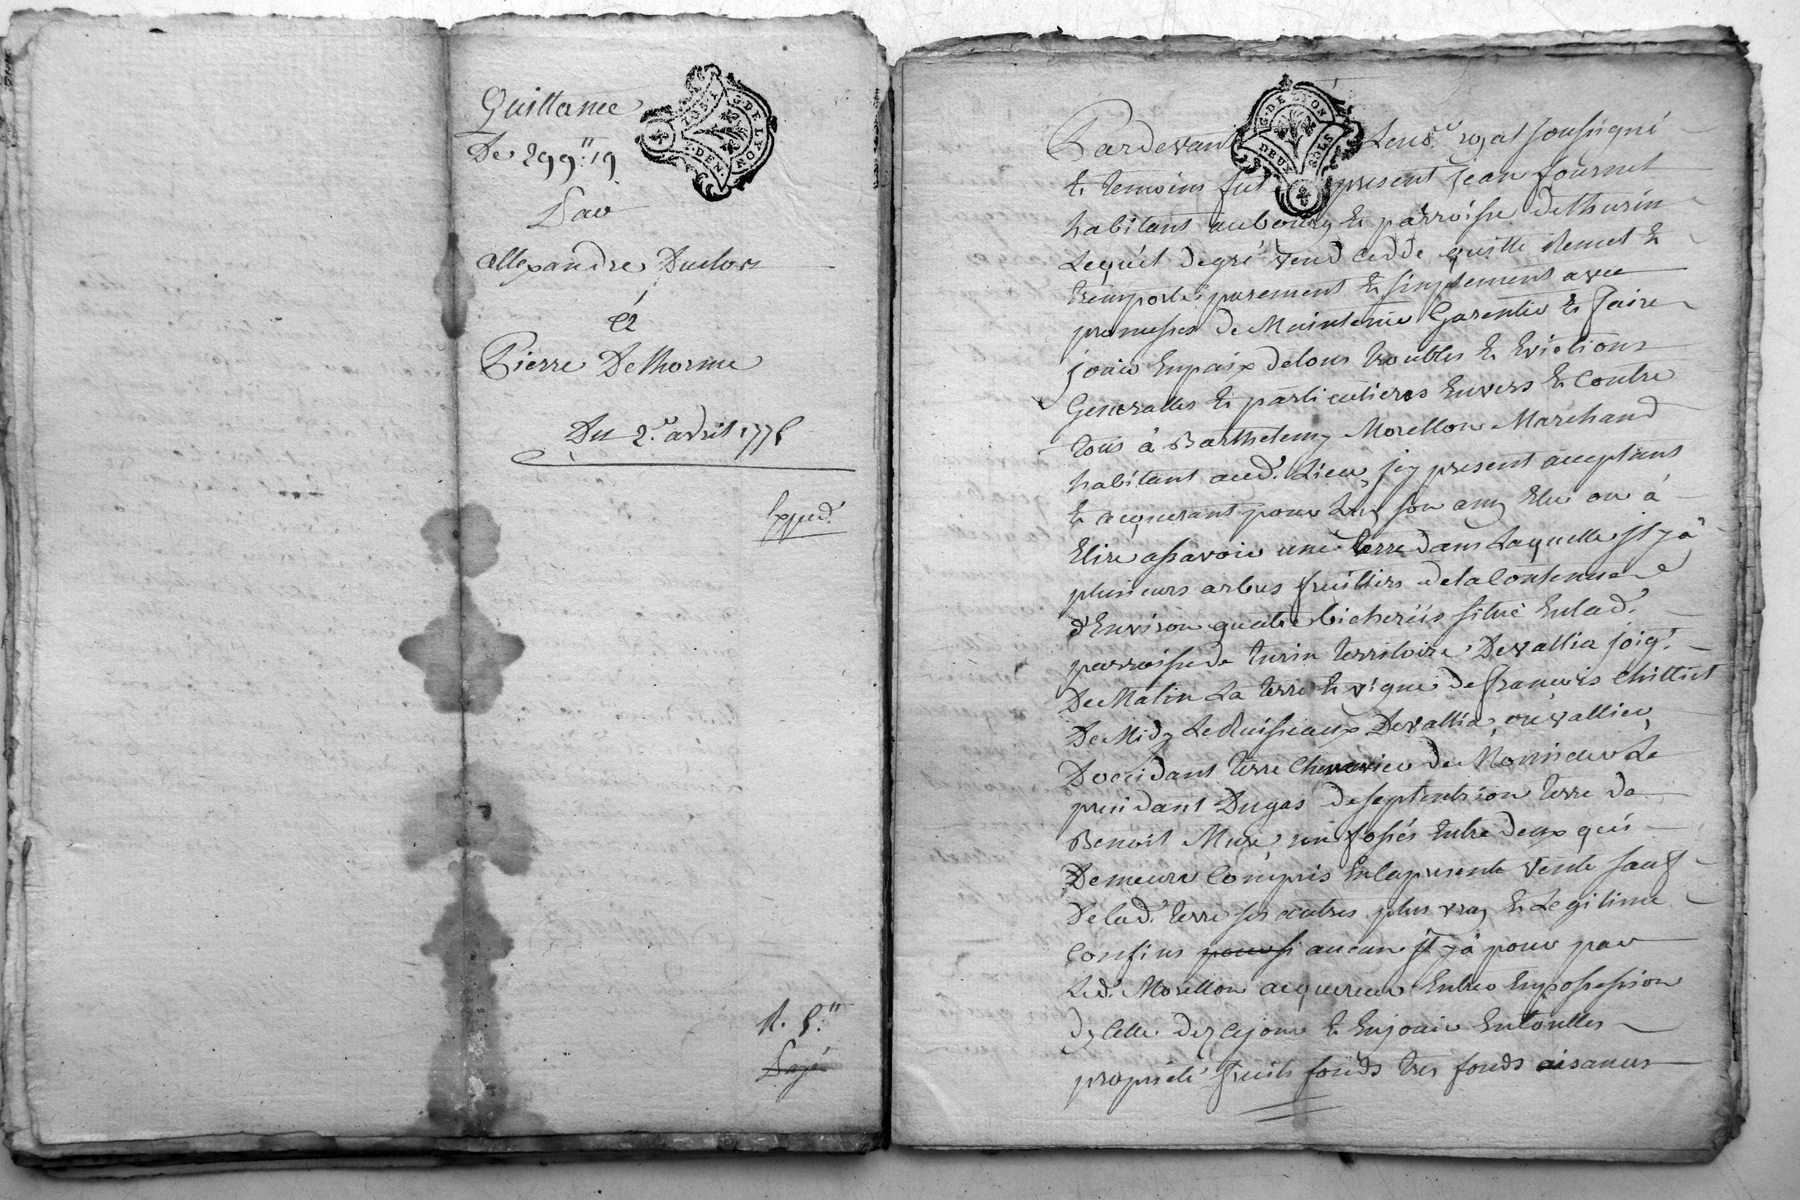 Quittance
De 299.# 19
Par
allexandre Duclos
à
Pierre Delhorme
Du 2.e avril 1775
Exped.
R. 5.#
Payé
G. DE LYON
2 DEN
G. DE LYON
DEUX SOLS
Pardevant Le no.re royal soussigné
Et temoins fut present jean fournet
habitant au bourg Et parroisse de thurin
Lequel de gré vend cedde quitte remet Et
transporte purement Et simplement avec
promesses de Maintenir Garentir Et faire
joüir En paix de tous troubles Et Evictions
Generalles Et particulieres Envers Et Contre
tous à Barthelemy Morellon Marchand
habitant aud. Lieu jcy present acceptant
Et acquerant pour Luy son amy Elu ou à
Elire assavoir une terre dans Laquelle jl y à
plusieurs arbres fruitiers de la Contenue
d'Environ quatre bicherées situé En lad.
parroisse de turin territoire De vallia joig.t
De Matin La terre Et vigne de françois Chillict
De Midy Le Ruisseaux De vallia ou vallieu
D'occidant terre Chenevier de Monsieur Le
president Dugas de septentrion terre de
Benoit Mure, un fossés Entre deux qui
Demeure Compris En la presente vente sauf
De lad. terre ses autres plus vray Et Legitime
Confins pour si aucun jl y à pour par
Led. Morellon acquereur Entrer En possession
d'jcelle dez ce jour Et En joüir En toutles
proprieté fruits fonds tres fonds aisances